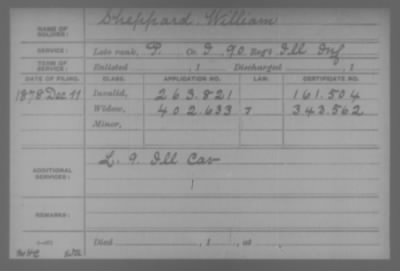 NAME OF SOLDIER: Sheppard, William
SERVICE: Late rank, P. Co. I 90 Reg't Ill Inf
TERM OF SERVICE: Enlisted , 1 Discharged , 1
DATE OF FILING. CLASS. APPLICATION NO. LAW. CERTIFICATE NO.
1878 Dec 11 Invalid, 263.821 161.504
Widow, 402.633 343.562
Minor,
ADDITIONAL SERVICES: L. 9. Ill Cav
REMARKS:
Died , 1 , at